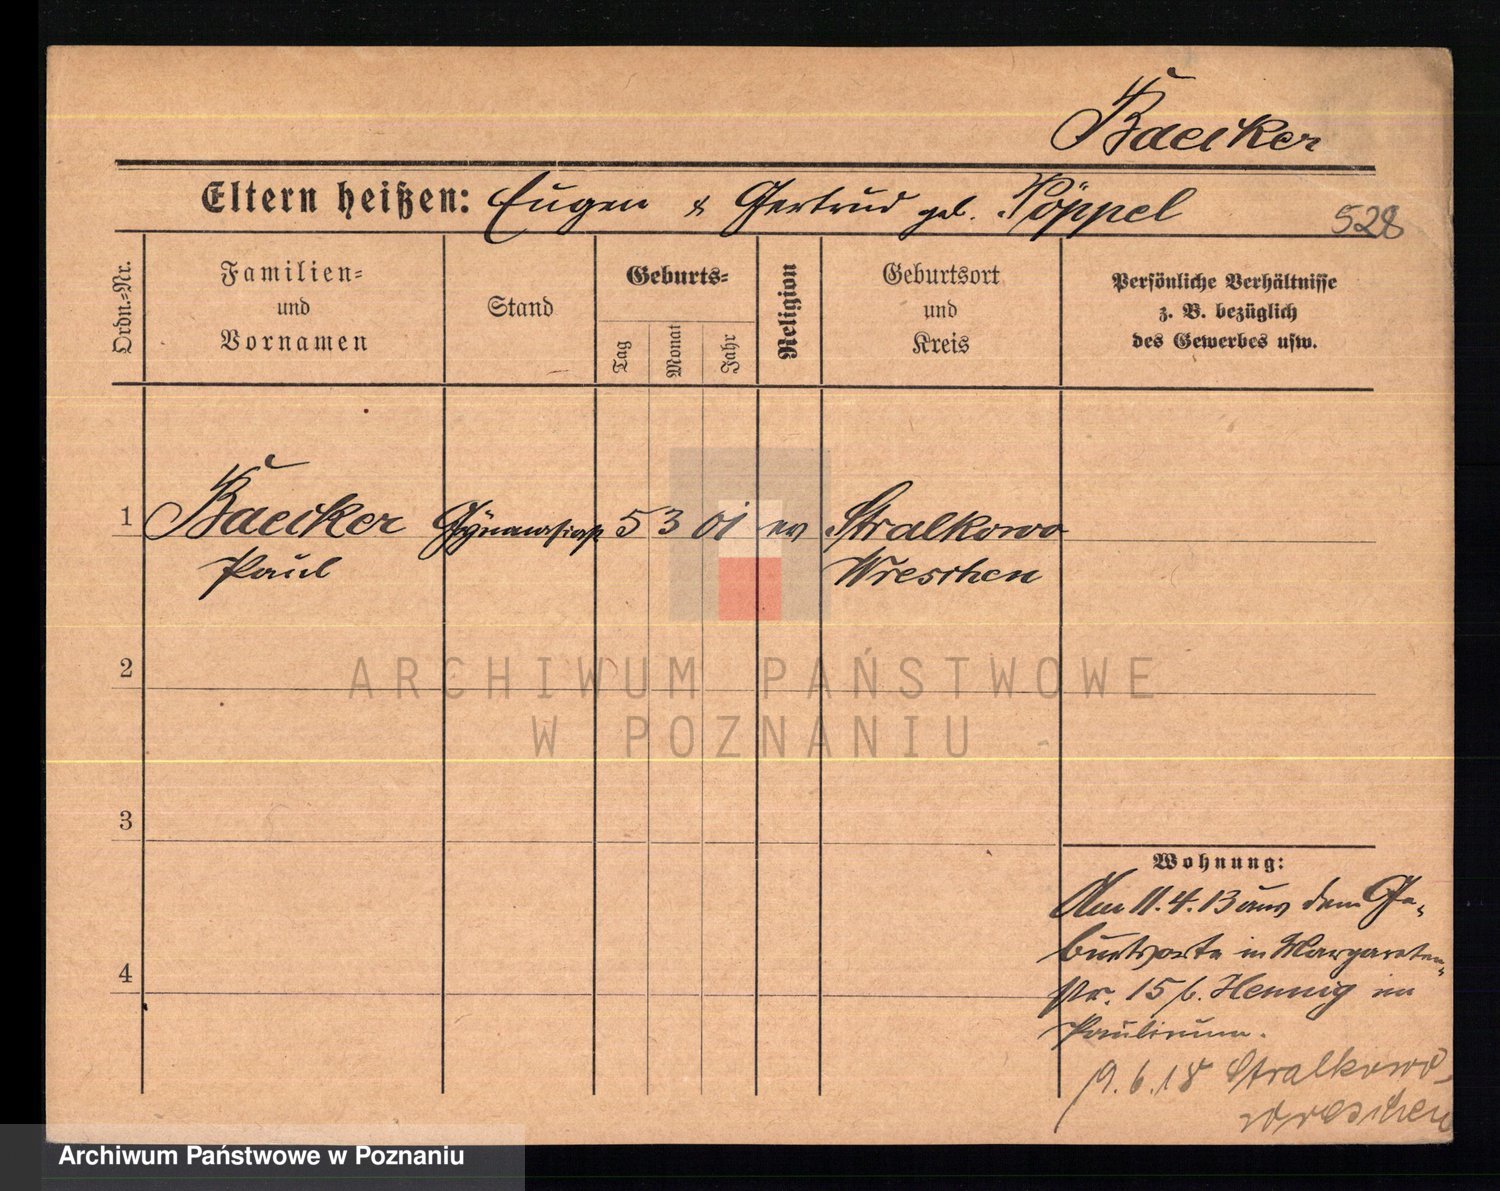 Baecker
Eltern heißen: Eugen & Gertrud geb. Pöppel
528
Ordn.=Nr.
Familien=
und
Vornamen
Stand
Geburts=
Tag
Monat
Jahr
Religion
Geburtsort
und
Kreis
Persönliche Verhältnisse
z. B. bezüglich
des Gewerbes usw.
1 Baecker Gymnasiast 5 3 01 ev Stralkowo
Paul Wreschen
2
ARCHIWUM PAŃSTWOWE
W POZNANIU
3
Wohnung:
Am 11.4.13 aus dem Ge-
burtsorte in Margareten-
str. 15 b. Hennig im
Paulinum.
4
19.6.18 Stralkowo,
Wreschen
Archiwum Państwowe w Poznaniu